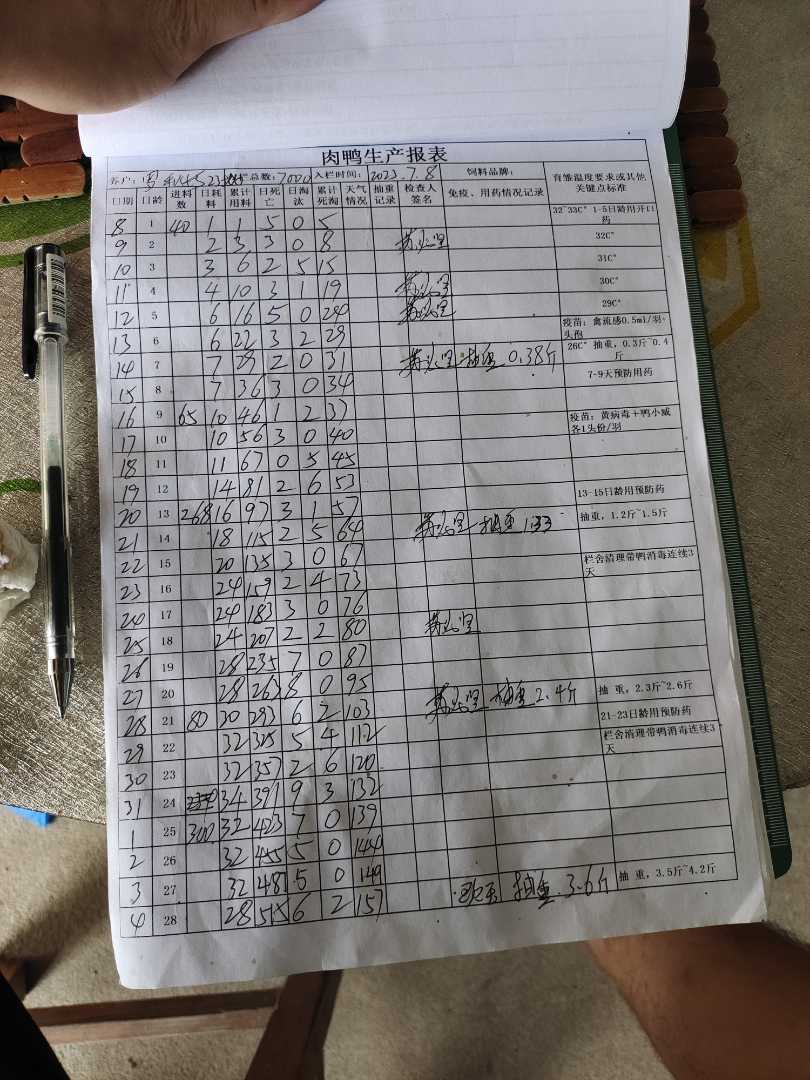 肉鸭生产报表
客户: 总数: 7000 入栏时间: 2023.7.8 饲料品牌: 育雏温度要求或其他关键点标准
日期 日龄 进料数 日耗料 累计用料 日死亡 日淘汰 累计死淘 天气情况 抽重记录 检查人签名 免疫、用药情况记录
8 1 40 1 1 5 0 5 32~33C° 1-5日龄用开口药
9 2 2 3 3 0 8 32C°
10 3 3 6 2 5 15 31C°
11 4 4 10 3 1 19 30C°
12 5 6 16 5 0 24 29C°
13 6 6 22 3 2 29 疫苗:禽流感0.5ml/羽·头孢
14 7 7 29 2 0 31 抽重 0.38斤 26C° 抽重,0.3斤~0.4斤
15 8 7 36 3 0 34 7-9天预防用药
16 9 65 10 46 1 2 37 疫苗:黄病毒+鸭小威各1头份/羽
17 10 10 56 3 0 40
18 11 11 67 0 5 45
19 12 14 81 2 6 53 13-15日龄用预防药
20 13 268 16 97 3 1 57
21 14 18 115 2 5 64 抽重 1.33 抽重,1.2斤~1.5斤
22 15 20 135 3 0 67 栏舍清理带鸭消毒连续3天
23 16 24 159 2 4 73
24 17 24 183 3 0 76
25 18 24 207 2 2 80
26 19 28 235 7 0 87
27 20 28 263 8 0 95 抽重 2.4斤 抽 重,2.3斤~2.6斤
28 21 80 30 293 6 2 103 21-23日龄用预防药
29 22 32 325 5 4 112 栏舍清理带鸭消毒连续3天
30 23 32 357 2 6 120
31 24 34 391 9 3 132
1 25 300 32 423 7 0 139
2 26 32 455 5 0 144
3 27 32 487 5 0 149 抽重 3.6斤 抽 重,3.5斤~4.2斤
4 28 28 515 6 2 157